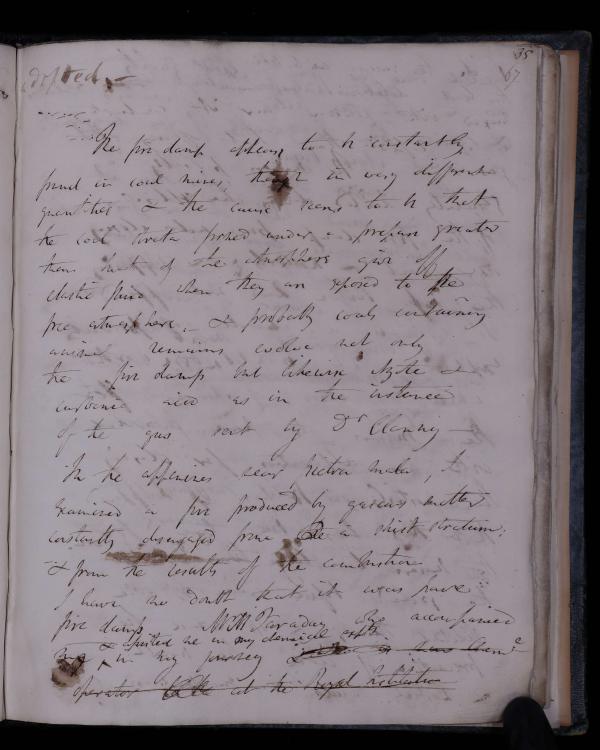 35
67
The fire damp appears to be constantly
found in coal mines, though in very different
quantities & the cause seems to be that
the coal strata formed under a pressure greater
than that of the atmosphere give off
elastic fluid when they are exposed to the
free atmosphere, & probably coals containing
animal remains evolve not only
the fire damp but likewise Azote &
carbonic acid as in the instance
of the gas sent by Dr Clanny —
In the appenines near Pietra Mala, I
examined a fire produced by gaseous matter
constantly disengaged from a shist stratum;
& from the results of the combustion
I have no doubt that it was pure
fire damp Mr M Faraday who accompanied
& assisted me in my chemical expts.
me in my journey
operator at the Royal Institution